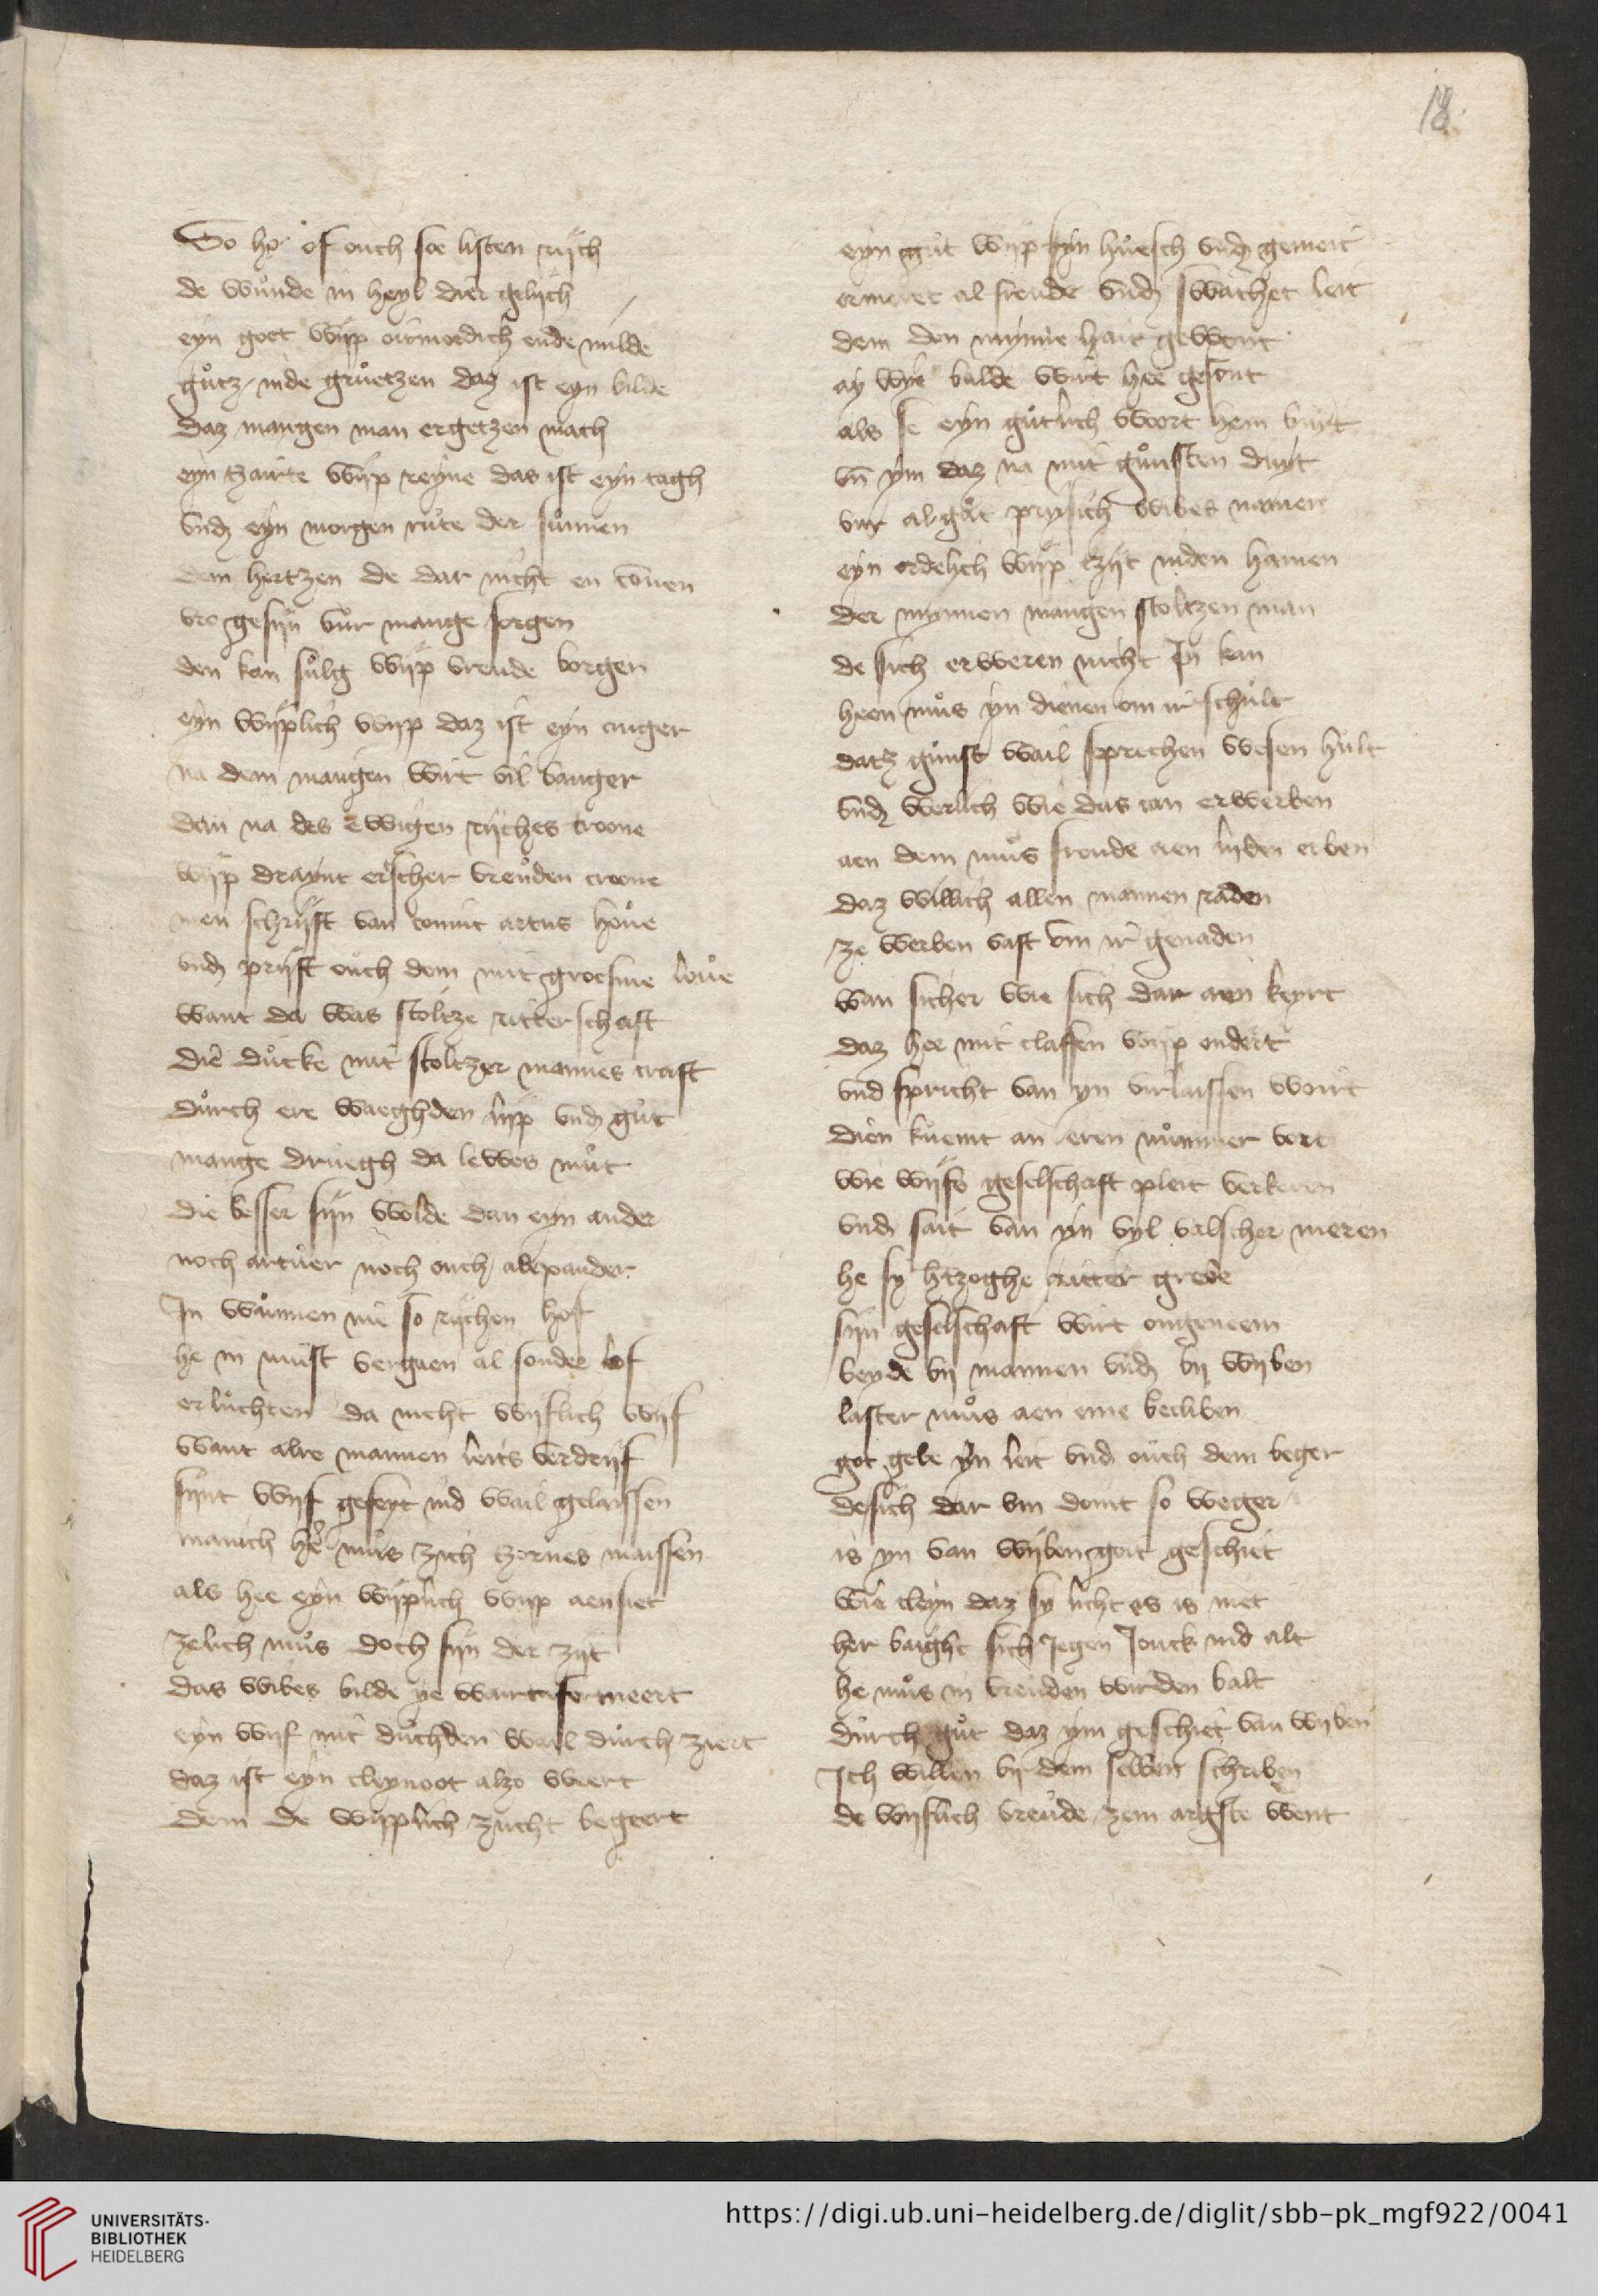 18.
So he of ouch soe listen rijch
de wuͦnde in heyl dier gelijch
eyn goet wijp oitmoedich ende milde
guͦtz inde gruͦetzen daz ist eyn bilde
daz mangen man ergetzen mach
eyn tzairte wijp reyne das ist eyn tagh
vnd eyn morgen der suͦnnen
dem hertzen de dar nicht en
vro gesijn vuͦr mange sorgen
den kan suͦlg wijp vreude borgen
eyn wijplich wijp daz ist eyn anger
na dem mangen wirt vil banger
dan na des ewigen rijches troone
wijp draynt vreuͦden croone
men schrijft van conint artus houe
vnd prijst ouch dem mit groesme loue
want da was stoltze ritterschaft
die duͦcke mit stoltzer mannes craft
duͦrch ere waeghden lijp vnd guͦt
mange druegh da lewes muͦt
die besser sijn wolde dan eyn ander
noch artuͦer noch ouch alexander
In wuͦnnen nie so rijchen hof
he in muͦst vergaen al sonder lof
erluͦchten da nicht wijflich wijf
want alre mannen leits verdrijf
sijnt wijf geseyt ind wail gelaissen
manich he muͦs zich zornes maissen
als hee eyn wijplich wijp aensiet
zelich muͦs doch sijn der zijt
das wibes bilde ye wart
eyn wijf mit duͦchden wail duͦrch ziert
daz ist eyn cleynoet alzo weert
dem de wijplich zucht begeert
eyn guͦt wijp fijn huͦesch vnd gemeit
ermeret al freude vnd swachet leit
dem den mynne hait gewont
ay wye balde wirt hee gesont
als se eyn guͦtlich woort hem
vnd ym daz na mit guͦnsten duyt
vur al guͦt prijsich wibes namen
eyn ordelich wijp tzijt inden hamen
der mynnen mangen stoltzen man
de sich erweren nicht In kan
heen muͦs yn dienen om ir schult
datz guͦnst wail sprechen wesen huͦlt
vnd werlich wie das can erwerben
aen dem muͦs freude aen lijden erben
daz willich allen mannen raden
ze werben vast vm ir genaden
wan sicher wie sich dar aen keyrt
daz hee mit claffen wijp
vnd spricht van yn virlaissen woirt
dien kuͦemt an eren nuͦmmer vort
wie wijfs geselschaft pleit verkeren
vnd sait van yn vyl valscher meren
he sy htzoghe ritter greve
sijn geselschaft wirt
beyde by mannen vnd by wijben
laster muͦs aen eme becliben
got gebe yn leit vnd ouch dem beger
desich dar vm doint so weger
is yn van wijben goit geschiet
wie cleyn daz sy licht es is niet
her sich Jegen Jonck ind alt
he muͦs in vreuden wirden balt
duͦrch guͦt daz ym geschiet van wijben
Ich willen by dem selben schriben
de wijflich vreuͦde zem argste went
UNIVERSITÄTS-
BIBLIOTHEK
HEIDELBERG
https://digi.ub.uni-heidelberg.de/diglit/sbb-pk_mgf922/0041